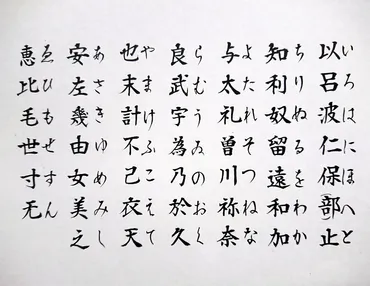 以い呂ろ波は仁に保ほ(部)へ止と
知ち利り奴ぬ留る遠を和わ加か
与よ太た礼れ曽そ川つ祢ね奈な
良ら武む宇う為ゐ乃の於お久く
也や末ま計け不ふ己こ衣え天て
安あ左さ幾き由ゆ女め美み之し
恵ゑ比ひ毛も世せ寸す无ん